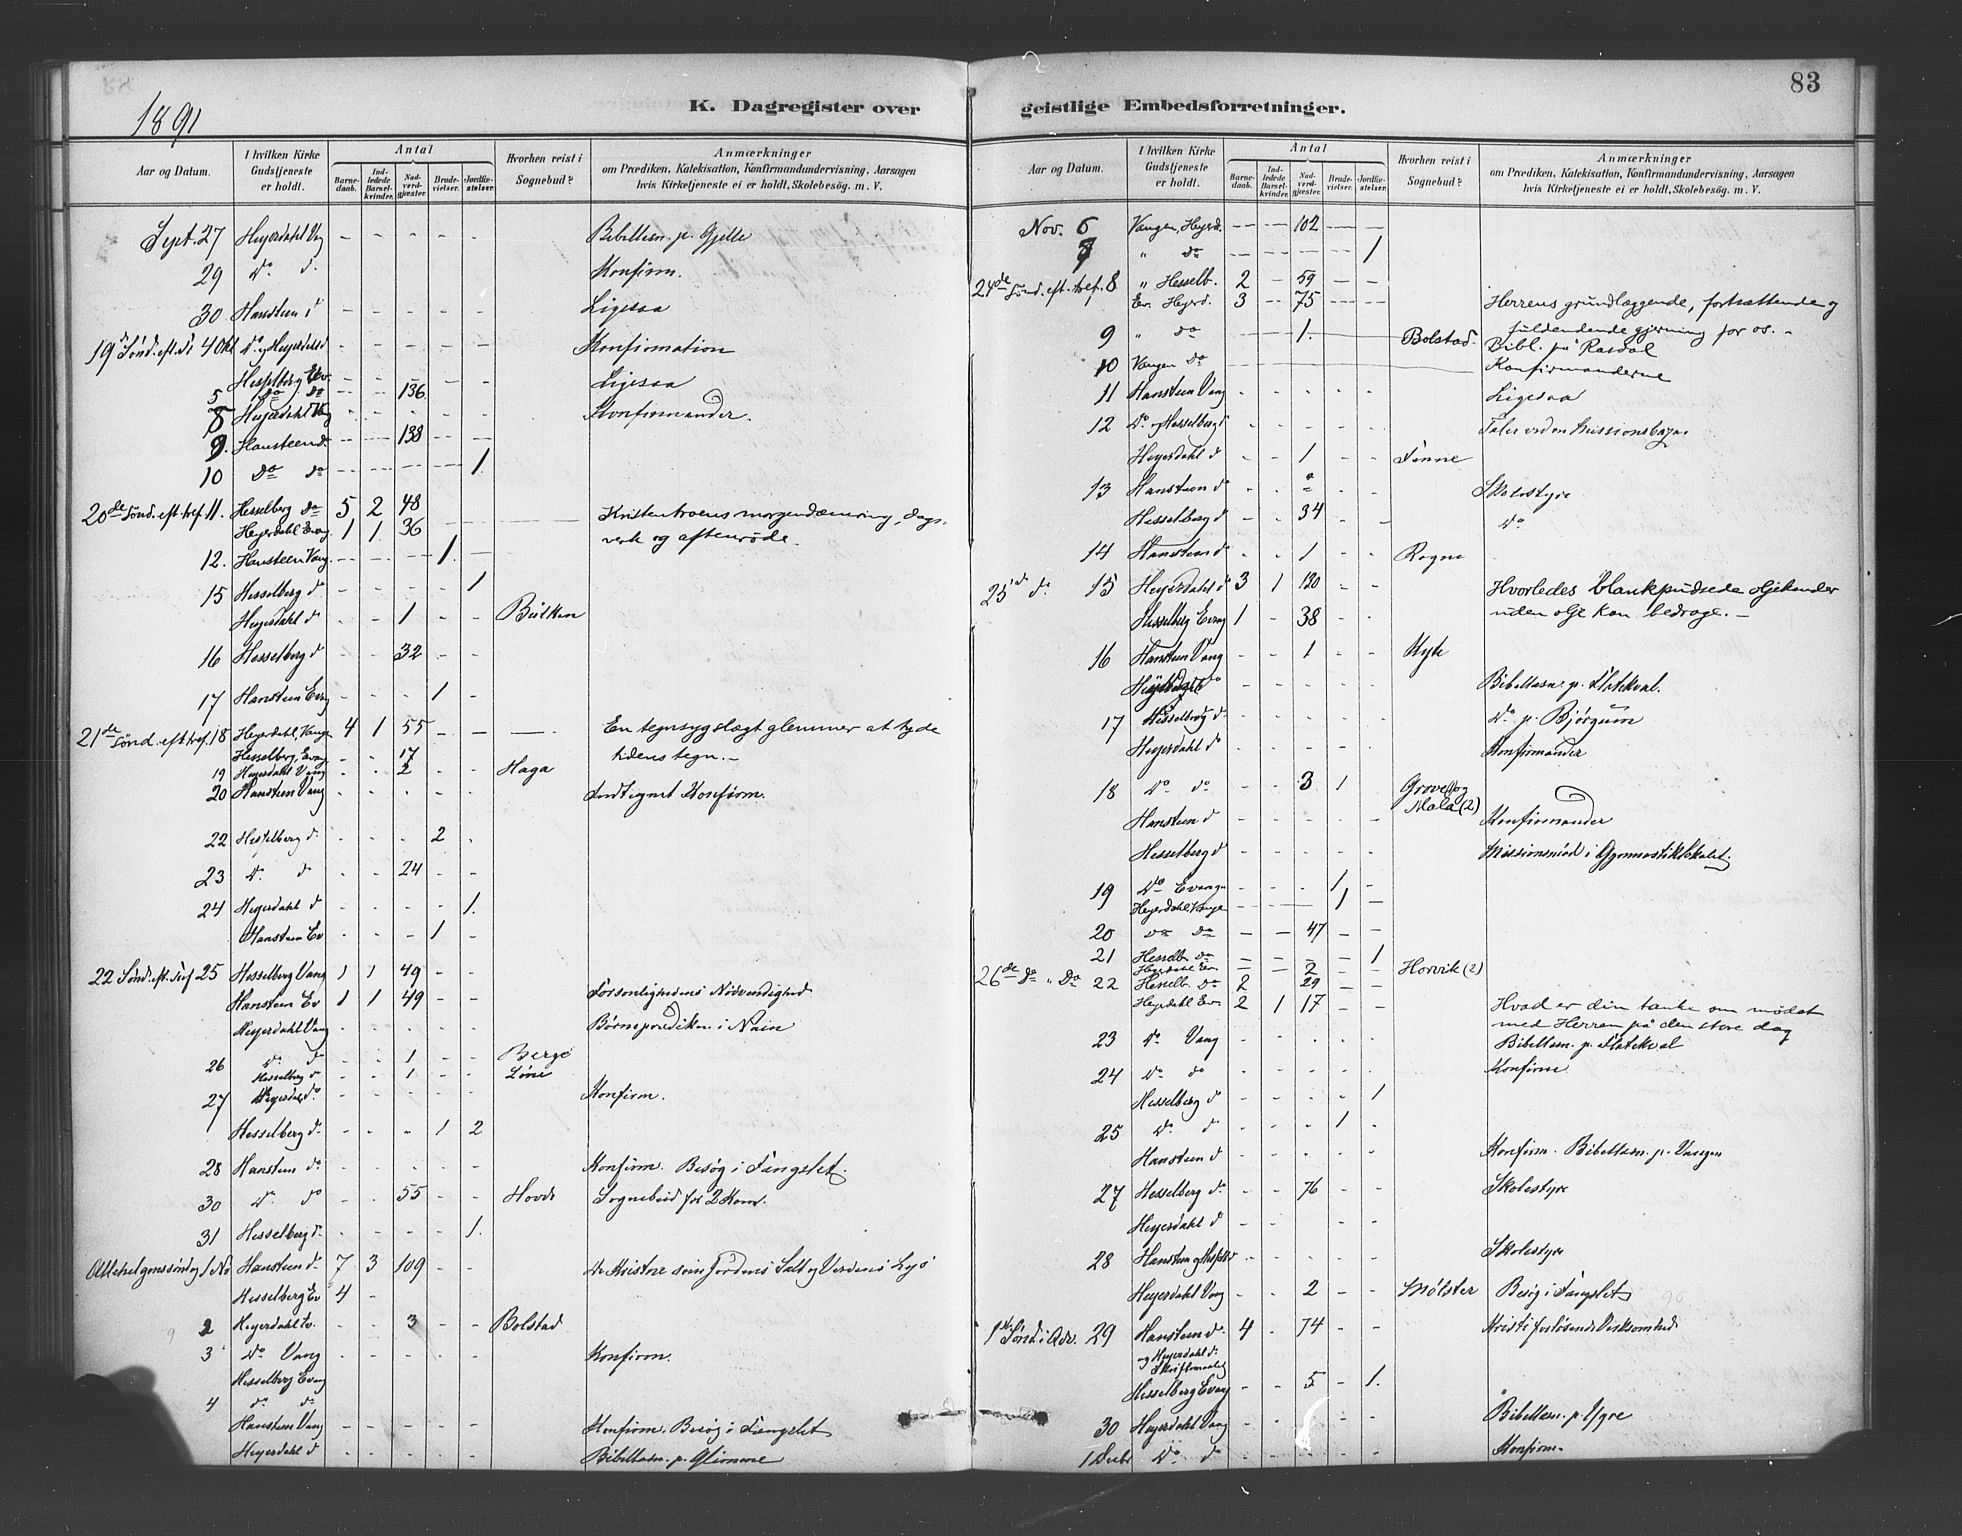 83
1891
K. Dagregister over geistlige Embedsforretninger.
Aar og Datum.
I hvilken Kirke Gudstjeneste er holdt.
Antal
Barnedaab.
Indledede Barselkvinder.
Nadverdgjester.
Brudevielser.
Jordfæstelser.
Hvorhen reist i Sognebud?
Anmærkninger
om Prædiken, Katekisation, Konfirmandundervisning, Aarsagen
hvis Kirketjeneste ei er holdt, Skolebesøg. m. V.
Sept. 27 Heyerdahl Vang - - - - - Bibellæsn. p. Gjelle
29 do d. - - - - - Konfirm.
30 Hansteen d - - - - - Ligesaa
19 Sønd. eft. 4 Okt do og Heyerdahl - - - - - Konfirmation
Hesselberg Ev. - - - - - Ligesaa
5 do do - - 136
8 Heyerdahl Vang - - - - - Konfirmander.
9. Hansteen d. - - 138 - -
10 do do - - - - 1.
20de Sønd. eft. tref. 11. Hesselberg do 5 2 48 Kristentroens morgendæmring, dags-
Heyerdahl Evang 1 1. 36 verk og aftenrøde.
12. Hansteen Vang. - - - 1. -
15 Hesselberg do - - - - 1
Heyerdahl d - - 1 - - Bulken
16 Hesselberg d - - 32 - -
17 Hansteen Evang - - - 1 -
21de Sønd. eft. tref. 18 Heyerdahl, Vange 4 1 55 - - En tegnsyg slægt glemmer at tyde
Hesselberg, Evang - - 17 tidens tegn. -
19 Heyerdahl Vang - - 2 - - Haga
20 Hansteen Vang - - - - - Indtegnet Konfirm.
22 Hesselberg d. - - - 2 -
23 do d - - 24 - -
24 Heyerdahl d - - - - 1.
Hansteen Ev - - - 1 -
22 Sønd. eft. Tref 25 Hesselberg Vang 1 1 49 - -
Hansteen Ev 1 1 49 - - Forsonlighedens Nødvendighed
Heyerdahl Vang - - - - - Børneprædiken i Nain
26 do d - - 1 - - Berge
Hesselberg d - - 1 - - Løne
27 Heyerdahl do - - - - - Konfirm.
Hesselberg d. - - - 1 2
28 Hansteen do - - - - - Konfirm. Besøg i Fængslet.
30 do do - - 55 - - Hovde Sognebud for 2 Kom.
31 Hesselberg d. - - - - 1.
Allehelgenssøndag 1 No Hansteen d. 7 3 109 - - De Kristne som Jordens Salt og Verdens Lys
Hesselberg Ev 4 -
2 Heyerdahl Ev. - - 3 - - Bolstad
3 do Vang - - - - - Konfirm.
Hesselberg Evang
4 do do
Hansteen Vang - - - - - Konfirm. Besøg i Fængslet
Heyerdahl d - - - - - Bibellæsn. p. Glimme
Aar og Datum.
I hvilken Kirke Gudstjeneste er holdt.
Antal
Barnedaab.
Indledede Barselkvinder.
Nadverdgjester.
Brudevielser.
Jordfæstelser.
Hvorhen reist i Sognebud?
Anmærkninger
om Prædiken, Katekisation, Konfirmandundervisning, Aarsagen
hvis Kirketjeneste ei er holdt, Skolebesøg. m. V.
Nov. 6 Vangen, Heyerd. - - 102 - -
7 " do - - - - 1
24de Sønd. eft. tref. 8 " Hesselb. 2 - 59 - -
Ev. Heyerd. 3 - 75 - - Herrens grundlæggende, fortsættende og
fuldendende gjerning for os. -
9 " do - - 1. - - Bolstad. Bibl. på Rasdal
10 Vangen do Konfirmanderne
11 Hansteen Vang - - - - - Ligesaa
12 do og Hesselberg d - - - - - Taler ved en Missionsbazar
Heyerdahl d - - 1 - - Finne
13 Hansteen d - - - - - Skolestyre
Hesselberg d - - 34 - - do
14 Hansteen d - - 1 - - Rogne
25de d. 15 Heyerdahl d 3 1 120 - - Hvorledes blankpudsede oljekander
Hesselberg Evang 1 - 38 - - uden olje kan bedrage. -
16 Hansteen Vang - - 1 - - Kyte
Heyerdahl do - - - - - Bibellæsn. p. Flatekval.
17 Hesselberg d. - - - - - do p. Bjørgum
Heyerdahl d - - - - - Konfirmander
18 do do - - 3 1 - Grove(1) og
Mala (2)
Hansteen d - - - - - Konfirmander
Hesselberg d - - - - - Missionsmød i Gymnastiklokalet.
19 do Evang. - - - 1 -
Heyerdahl, Vange - - - 1 -
20 do do - - 47 - -
21 Hesselb. do - - - - 1
Heyerdahl Ev. - - 2 - - Horvik (2)
26de do " do 22 Hesselb. do 2 29 - -
Heyerdahl Ev. 2 1 17 - - Hvad er din tanke om mødet
med Herren på den store dag
23 do Vang - - - - - Bibellæsn. p. Flatekval
24 do do - - - - - Konfirm.
Hesselberg d - - - - 1
25 do d - - - 1 -
Hansteen d - - - - - Konfirm. Bibellæsn. p. Vangen
27 Hesselberg do - - 76 - - Skolestyre
Heyerdahl d - - - - -
28 Hansteen og Hesselb - - - - - Skolestyre
Heyerdahl Vang - - 2 - - Mølster Besøg i Fængslet
1ste Sønd. i Adv. 29 Hansteen d. 4 - 74 - - Kristi forløsende Virksomhed
og Heyerdahl d.
Skriftemaalet
Hesselberg Evang - - 5 - 1.
30 Heyerdahl Vang - - - - - Bibellæsn. p. Ygre
1 Decbr do d - - - - - Konfirm.